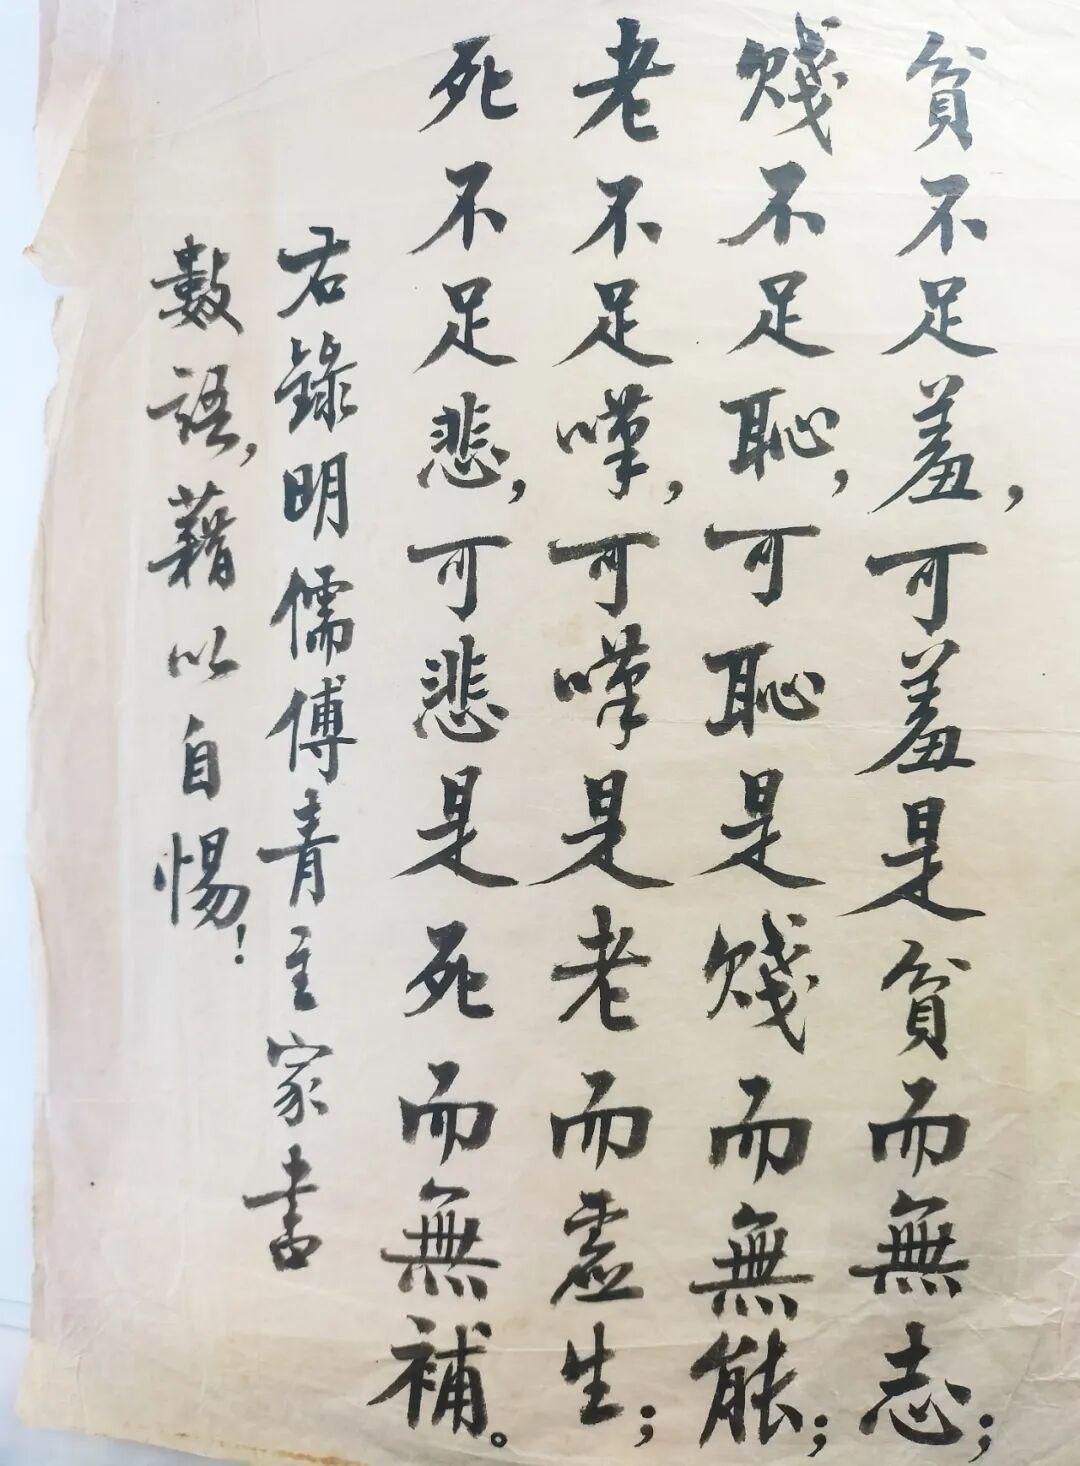 貧不足羞，可羞是貧而無志；
賤不足恥，可恥是賤而無能；
老不足嘆，可嘆是老而虛生；
死不足悲，可悲是死而無補。
右錄明儒傅青主家書
數語，藉以自惕！